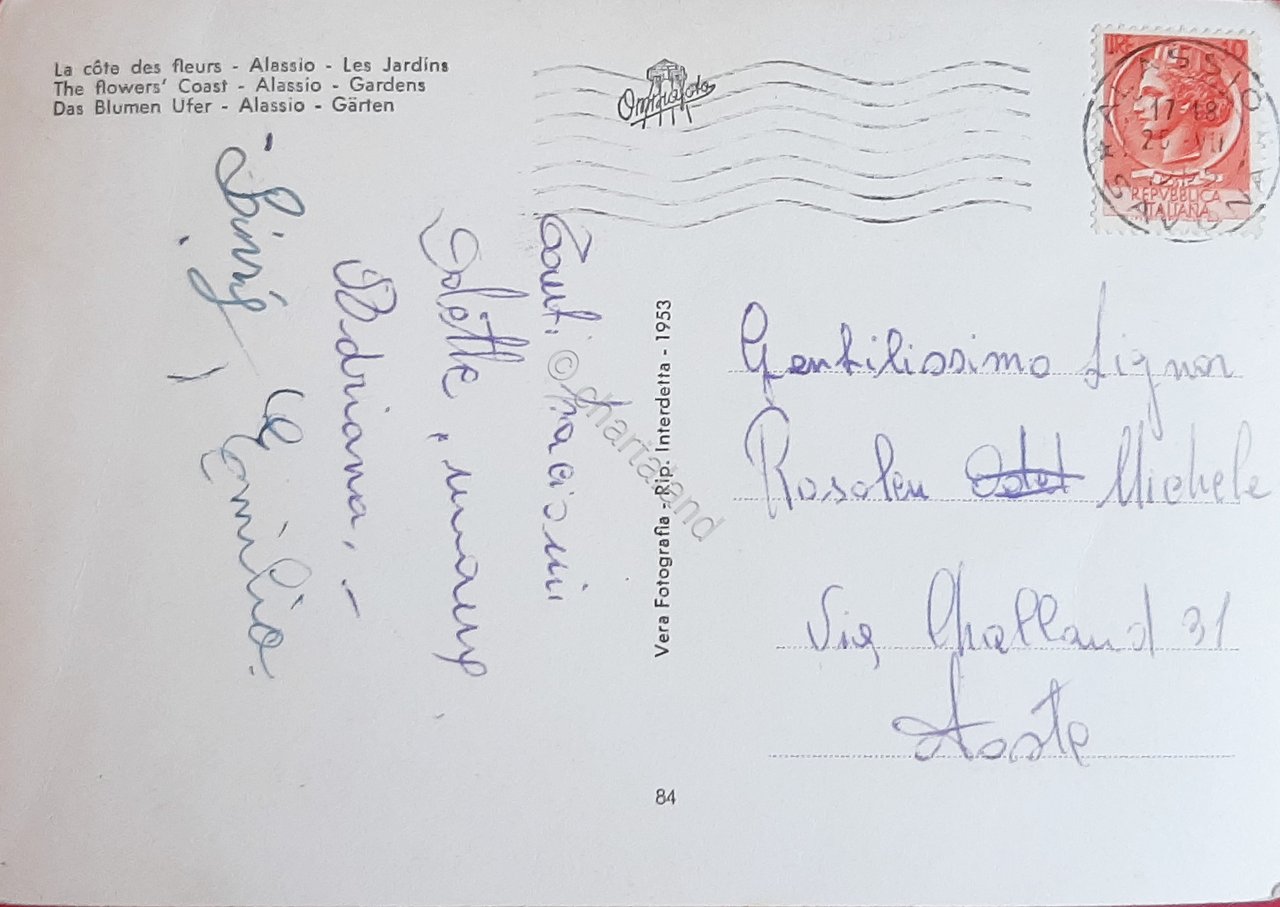 La côte des fleurs - Alassio - Les Jardins
The flowers' Coast - Alassio - Gardens
Das Blumen Ufer - Alassio - Gärten
Omniafoto
LIRE 10
REPVBBLICA
ITALIANA
ALASSIO
17-18
25 VII
SAVONA
Tanti bacioni
Adriana, -
e Emilio.
© chartaland
Vera Fotografia - Rip. Interdetta - 1953
84
Gentilissimo Signor
Michele
Via Challand 31
Aosta